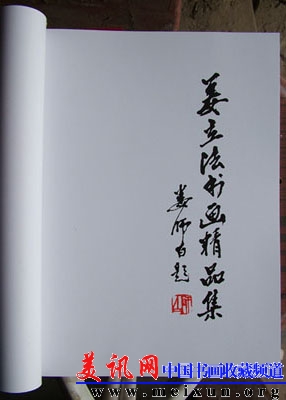 姜立法书画精品集
娄师白题
美讯网 中国书画收藏频道
www.meixun.net